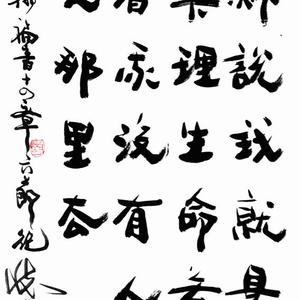 穌說我就是
真理生命若
着我沒有人
那里去
翰福音十四章六節